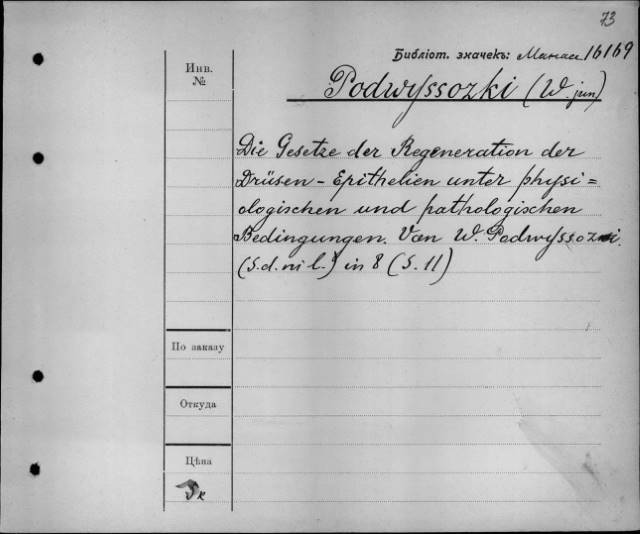 73
Библіот. значекъ: Манас 16169
Инв.
№
Podwyssozki (W. jun)
Die Gesetze der Regeneration der
Drüsen-Epithelien unter physi=
ologischen und pathologischen
Bedingungen. Von W. Podwyssozki.
(S. d. ni l.) in 8 (S. 11)
По заказу
Откуда
Цѣна